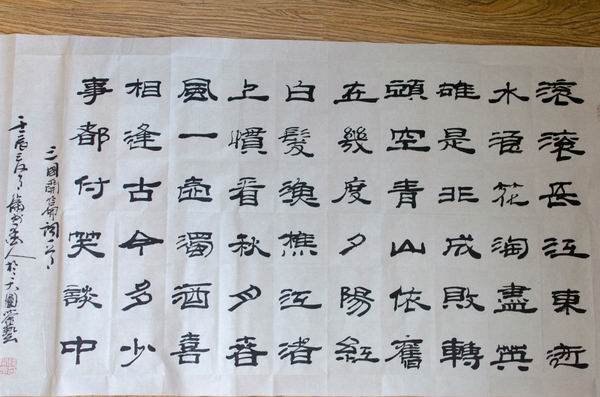 滚滚長江東逝
水浪花淘盡英
雄是非成敗轉
頭空青山依舊
在幾度夕陽紅
白髮漁樵江渚
上慣看秋月春
風一壺濁酒喜
相逢古今多少
事都付笑談中
三國開篇詞一首
壬辰